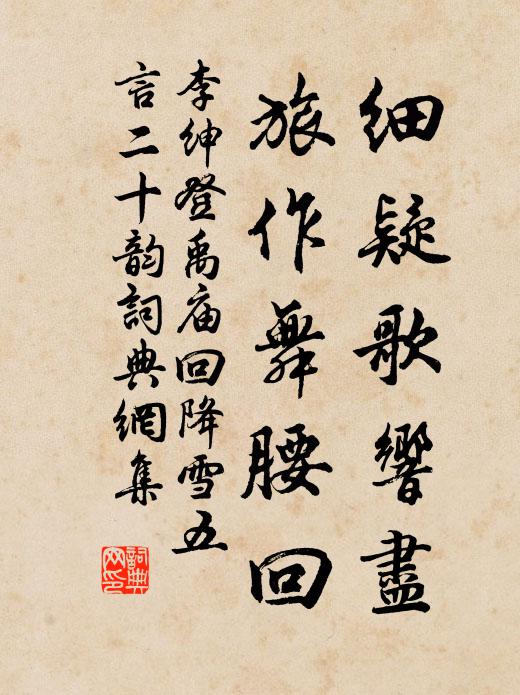 细疑歌響盡
旅作舞腰回
李绅登禹庙回降雪五
言二十韵詞典網集
詞典
网印